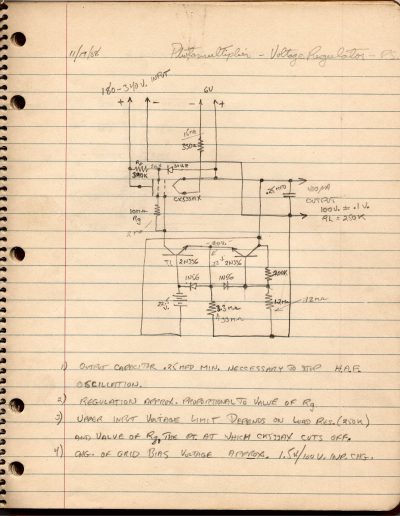 11/19/58 Photomultiplier - Voltage Regulator - P.S.
180-320 V. INPUT
6V
+ - - +
390K
10MΩ
Rg
CK533AX
.25 MFD
400μA
OUTPUT
100V. ± .1V.
RL = 250K
2N336 2N336
IN56 IN56
22½
V.
200K
3.3MΩ
1.2MΩ
1) OUTPUT CAPACITOR .25 MFD MIN. NECCESSARY TO STOP H.F.
OSCILLATION.
2) REGULATION APPROX. PROPORTIONAL TO VALUE OF Rg
3) UPPER INPUT VOLTAGE LIMIT DEPENDS ON LOAD RES. (250K)
AND VALUE OF Rg, THE PT. AT WHICH CK533AX CUTS OFF.
4) CHG. OF GRID BIAS VOLTAGE APPROX. 1.5V/100V. INP. CHG.